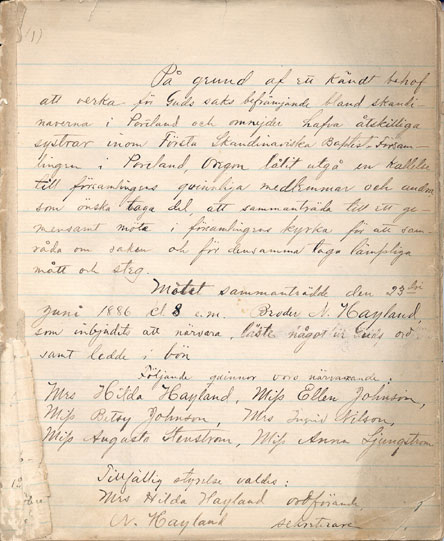 (1)
På grund af ett kändt behof
att verka för Guds saks befrämjande bland skandi
naverna i Portland och omnejder hafva åtskilliga
systrar inom Första Skandinaviska Baptist-Försam-
lingen i Portland, Oregon låtit utgå en kallelse
till församlingens qvinliga medlemmar och andra
som önska taga del, att sammanträda till ett ge-
mensamt möte i församlingens kyrka för att sam-
råda om saken och för densamma taga lämpliga
mått och steg.
Mötet sammanträdde den 23
Juni 1886 kl 8 e.m. Broder N. Hayland,
som inbjudits att närvara, läste något ur Guds ord
samt ledde i bön
Följande qvinnor voro närvarande:
Mrs Hilda Hayland, Miss Ellen Johnson,
Miss Betsy Johnson, Mrs Ingrid Nilson,
Miss Augusta Stenstrom, Miss Anna Ljungstrom
Tillfällig styrelse valdes:
Mrs Hilda Hayland ordförande
N. Hayland sekreterare